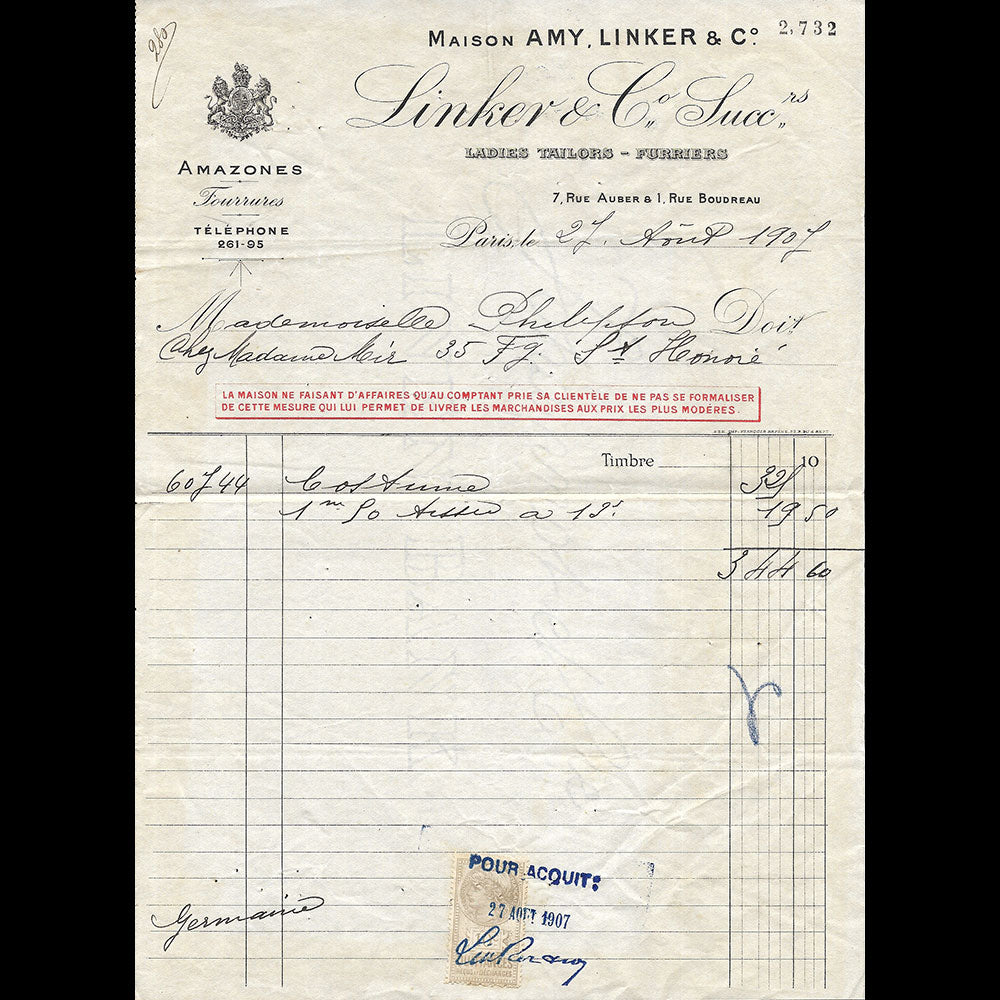 280
MAISON AMY, LINKER & Cº.
2,732
Linker & Cº Succrs
LADIES TAILORS - FURRIERS
AMAZONES
Fourrures
TÉLÉPHONE
261-95
7, RUE AUBER & 1, RUE BOUDREAU
Paris, le 27 Août 1907
Mademoiselle Philippson Doit
Chez Madame Mir 35 Fg. St Honoré
LA MAISON NE FAISANT D'AFFAIRES QU'AU COMPTANT PRIE SA CLIENTÈLE DE NE PAS SE FORMALISER
DE CETTE MESURE QUI LUI PERMET DE LIVRER LES MARCHANDISES AUX PRIX LES PLUS MODÉRÉS.
Timbre 10
60744 Costume 325
1m 50 tissu a 13f 19 50
344 60
POUR ACQUIT:
27 AOUT 1907
Germaine